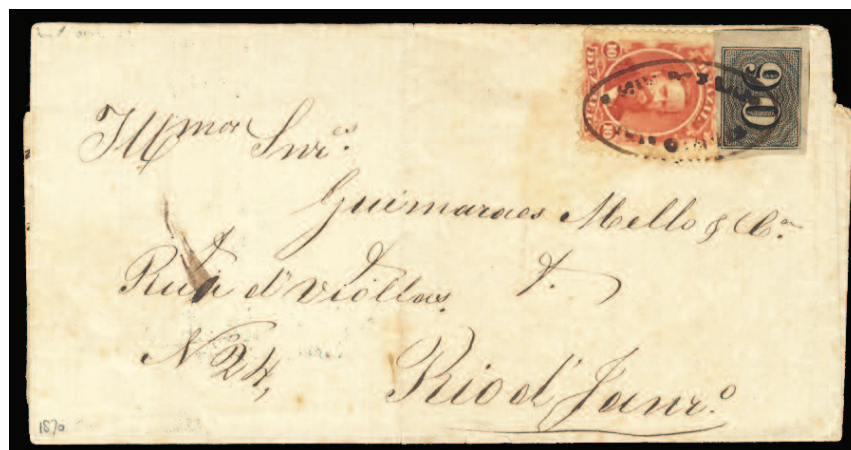 Illmos Snres.
Guimaraes Mello & Ca.
Rua d'Viollas.
N 24,
Rio d' Janro.
1870
10
60